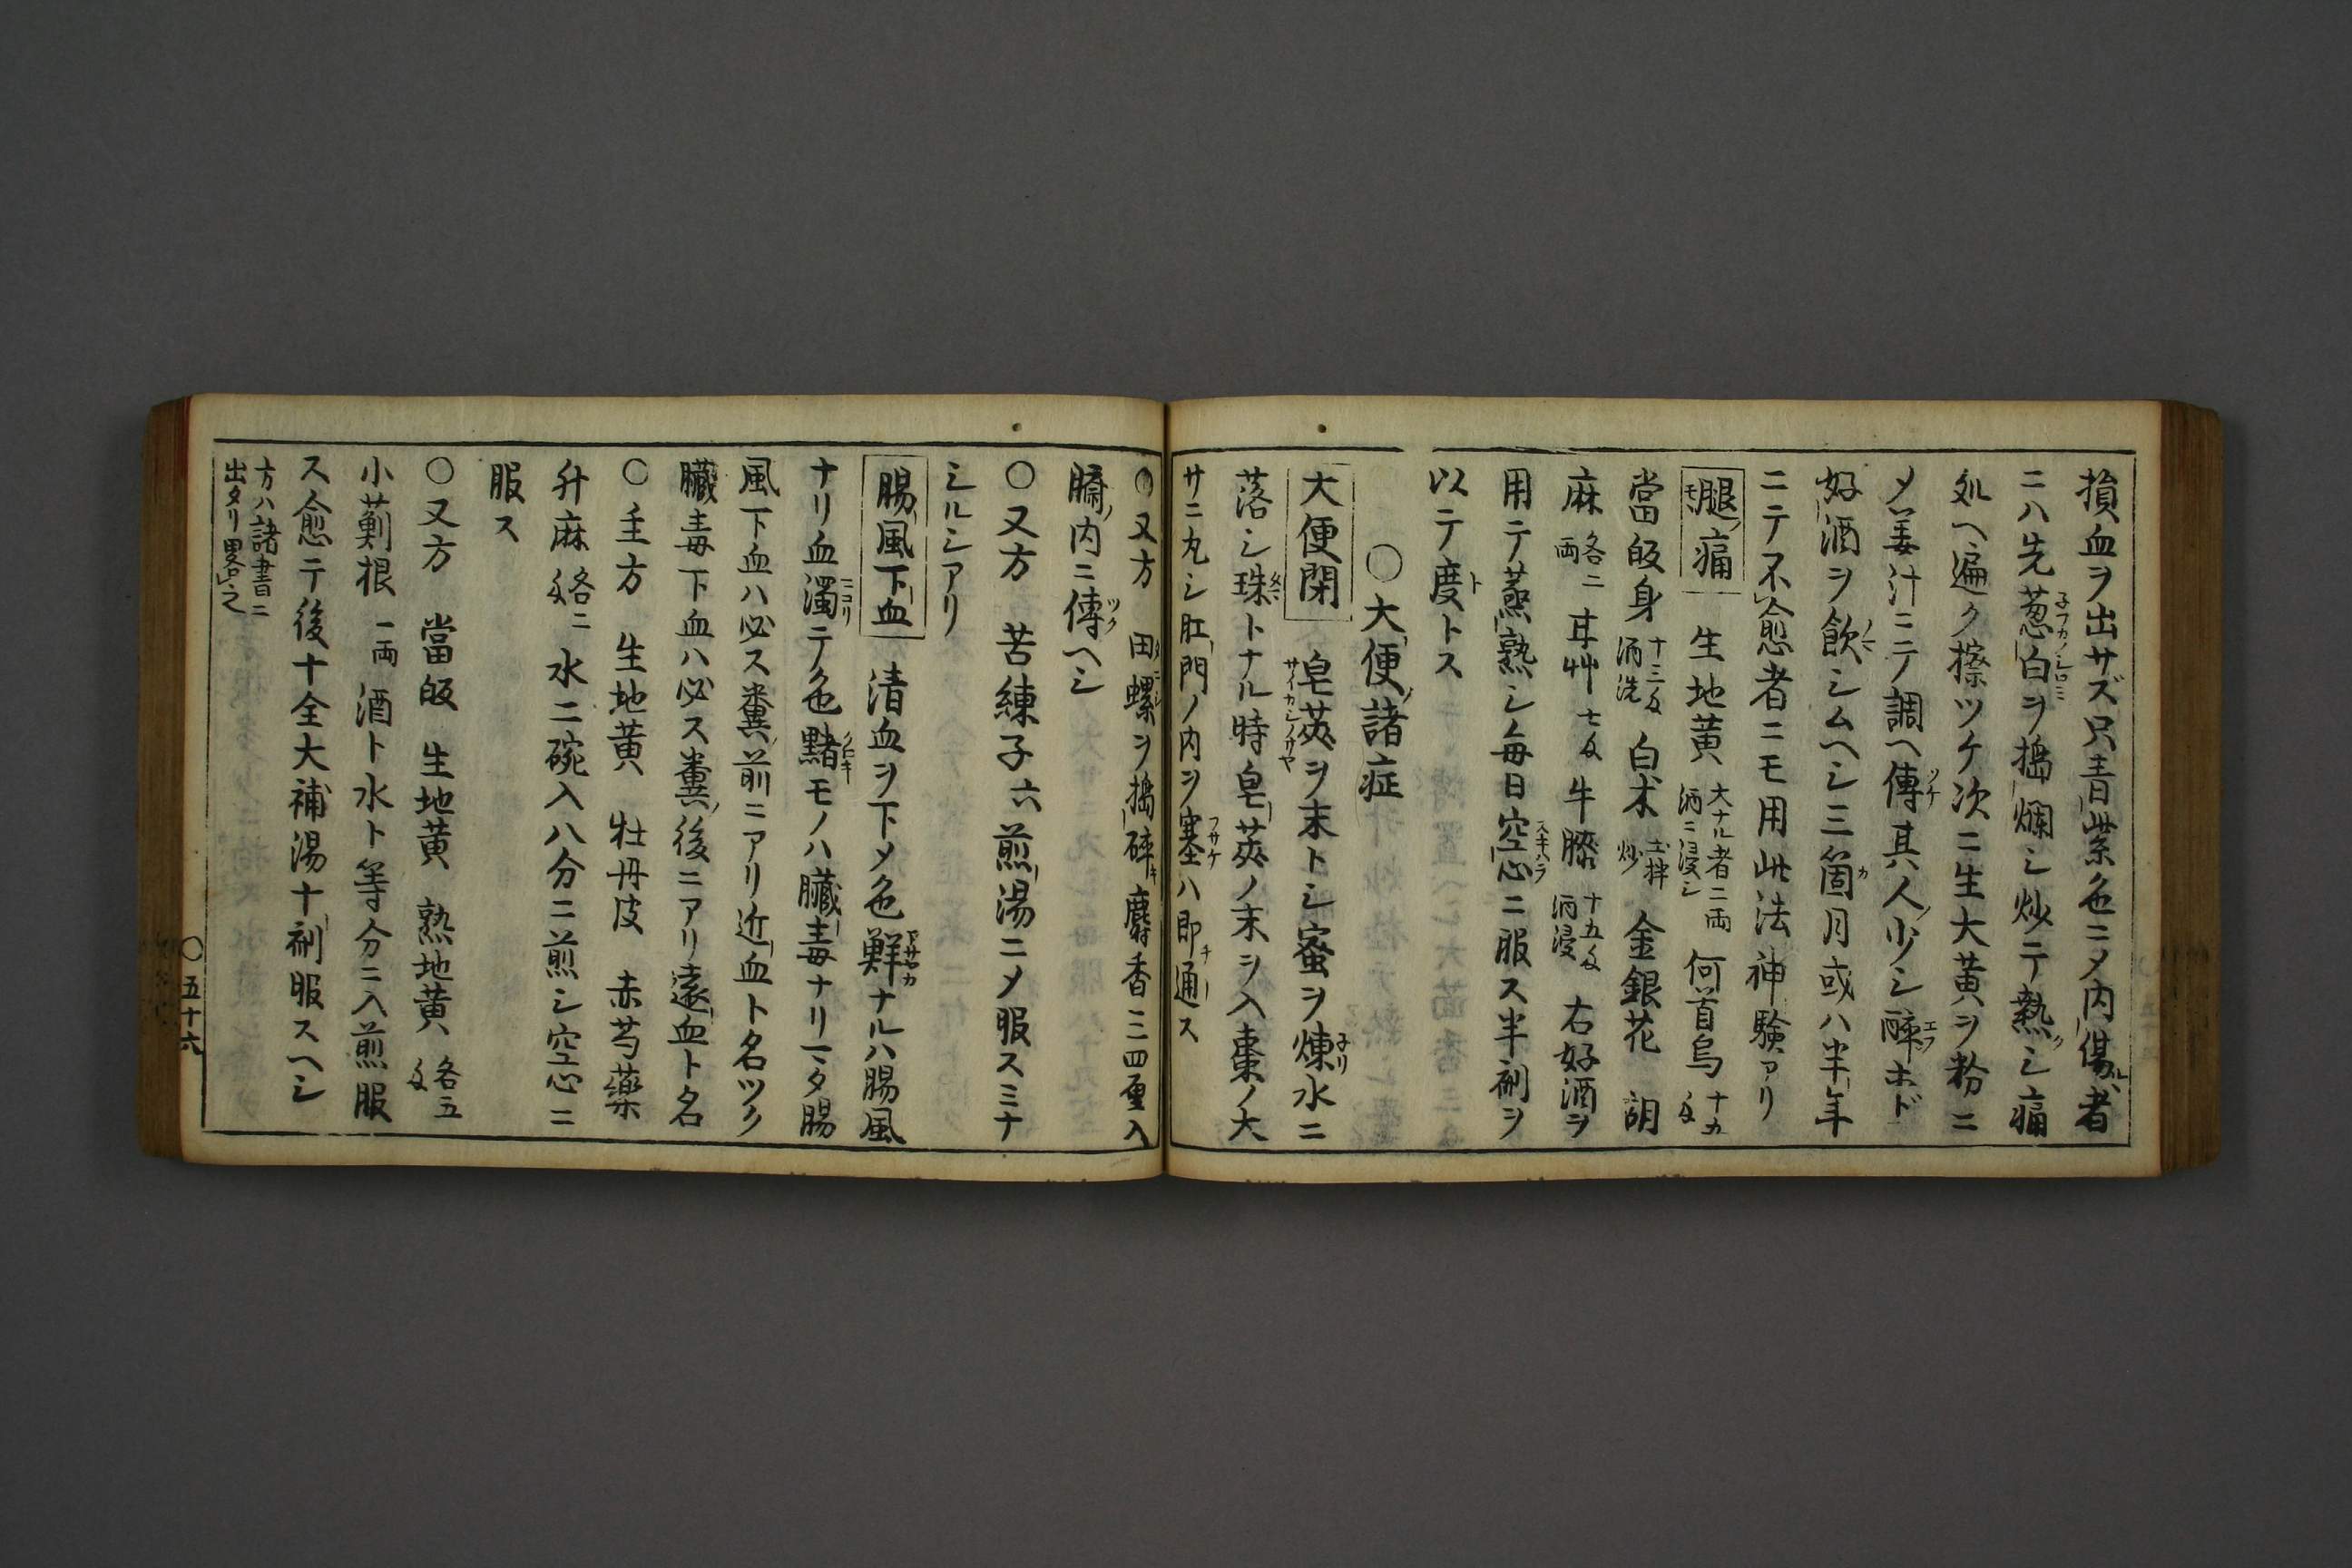 損血ヲ出サズ只青紫色ニメ内傷ル者
ニハ先葱白ヲ搗爛シ炒テ熱シ痛
処ヘ遍ク擦ツケ次ニ生大黄ヲ粉ニ
メ姜汁ニテ調ヘ傅其人少シ醉ホド
好酒ヲ飲シムヘシ三箇月或ハ半年
ニテ不愈者ニモ用此法神験アリ
腿痛 生地黄 大ナル者二両酒ニ浸シ 何首烏
當皈身 酒洗 白朮 土拌炒 金銀花 胡
麻 各二両 甘艸 牛膝 酒浸 右好酒ヲ
用テ蒸熟シ毎日空心ニ服ス半剤ヲ
以テ度トス
〇大便諸症
大便閉 皂莢ヲ末トシ蜜ヲ煉水ニ
落シ珠トナル時皂莢ノ末ヲ入棗ノ大
サニ丸シ肛門ノ内ヲ塞ハ即通ス
〇又方 田螺ヲ搗碎麝香三四厘入
臍内ニ傅ヘシ
〇又方 苦練子六煎湯ニメ服スミナ
シルシアリ
腸風下血 清血ヲ下メ色鮮ナルハ腸風
ナリ血濁テ色黯モノハ臓毒ナリ一タ腸
風下血ハ必ス糞前ニアリ近血ト名ツク
臓毒下血ハ必ス糞後ニアリ遠血ト名
〇主方 生地黄 牡丹皮 赤芍藥
升麻 各二 水二碗入八分ニ煎シ空心ニ
服ス
〇又方 當皈 生地黄 熟地黄 各五
小薊根 一両 酒ト水ト等分ニ入煎服
ス愈テ後十全大補湯十剤服スヘシ
方ハ諸書ニ
出タリ畧之
〇五十六